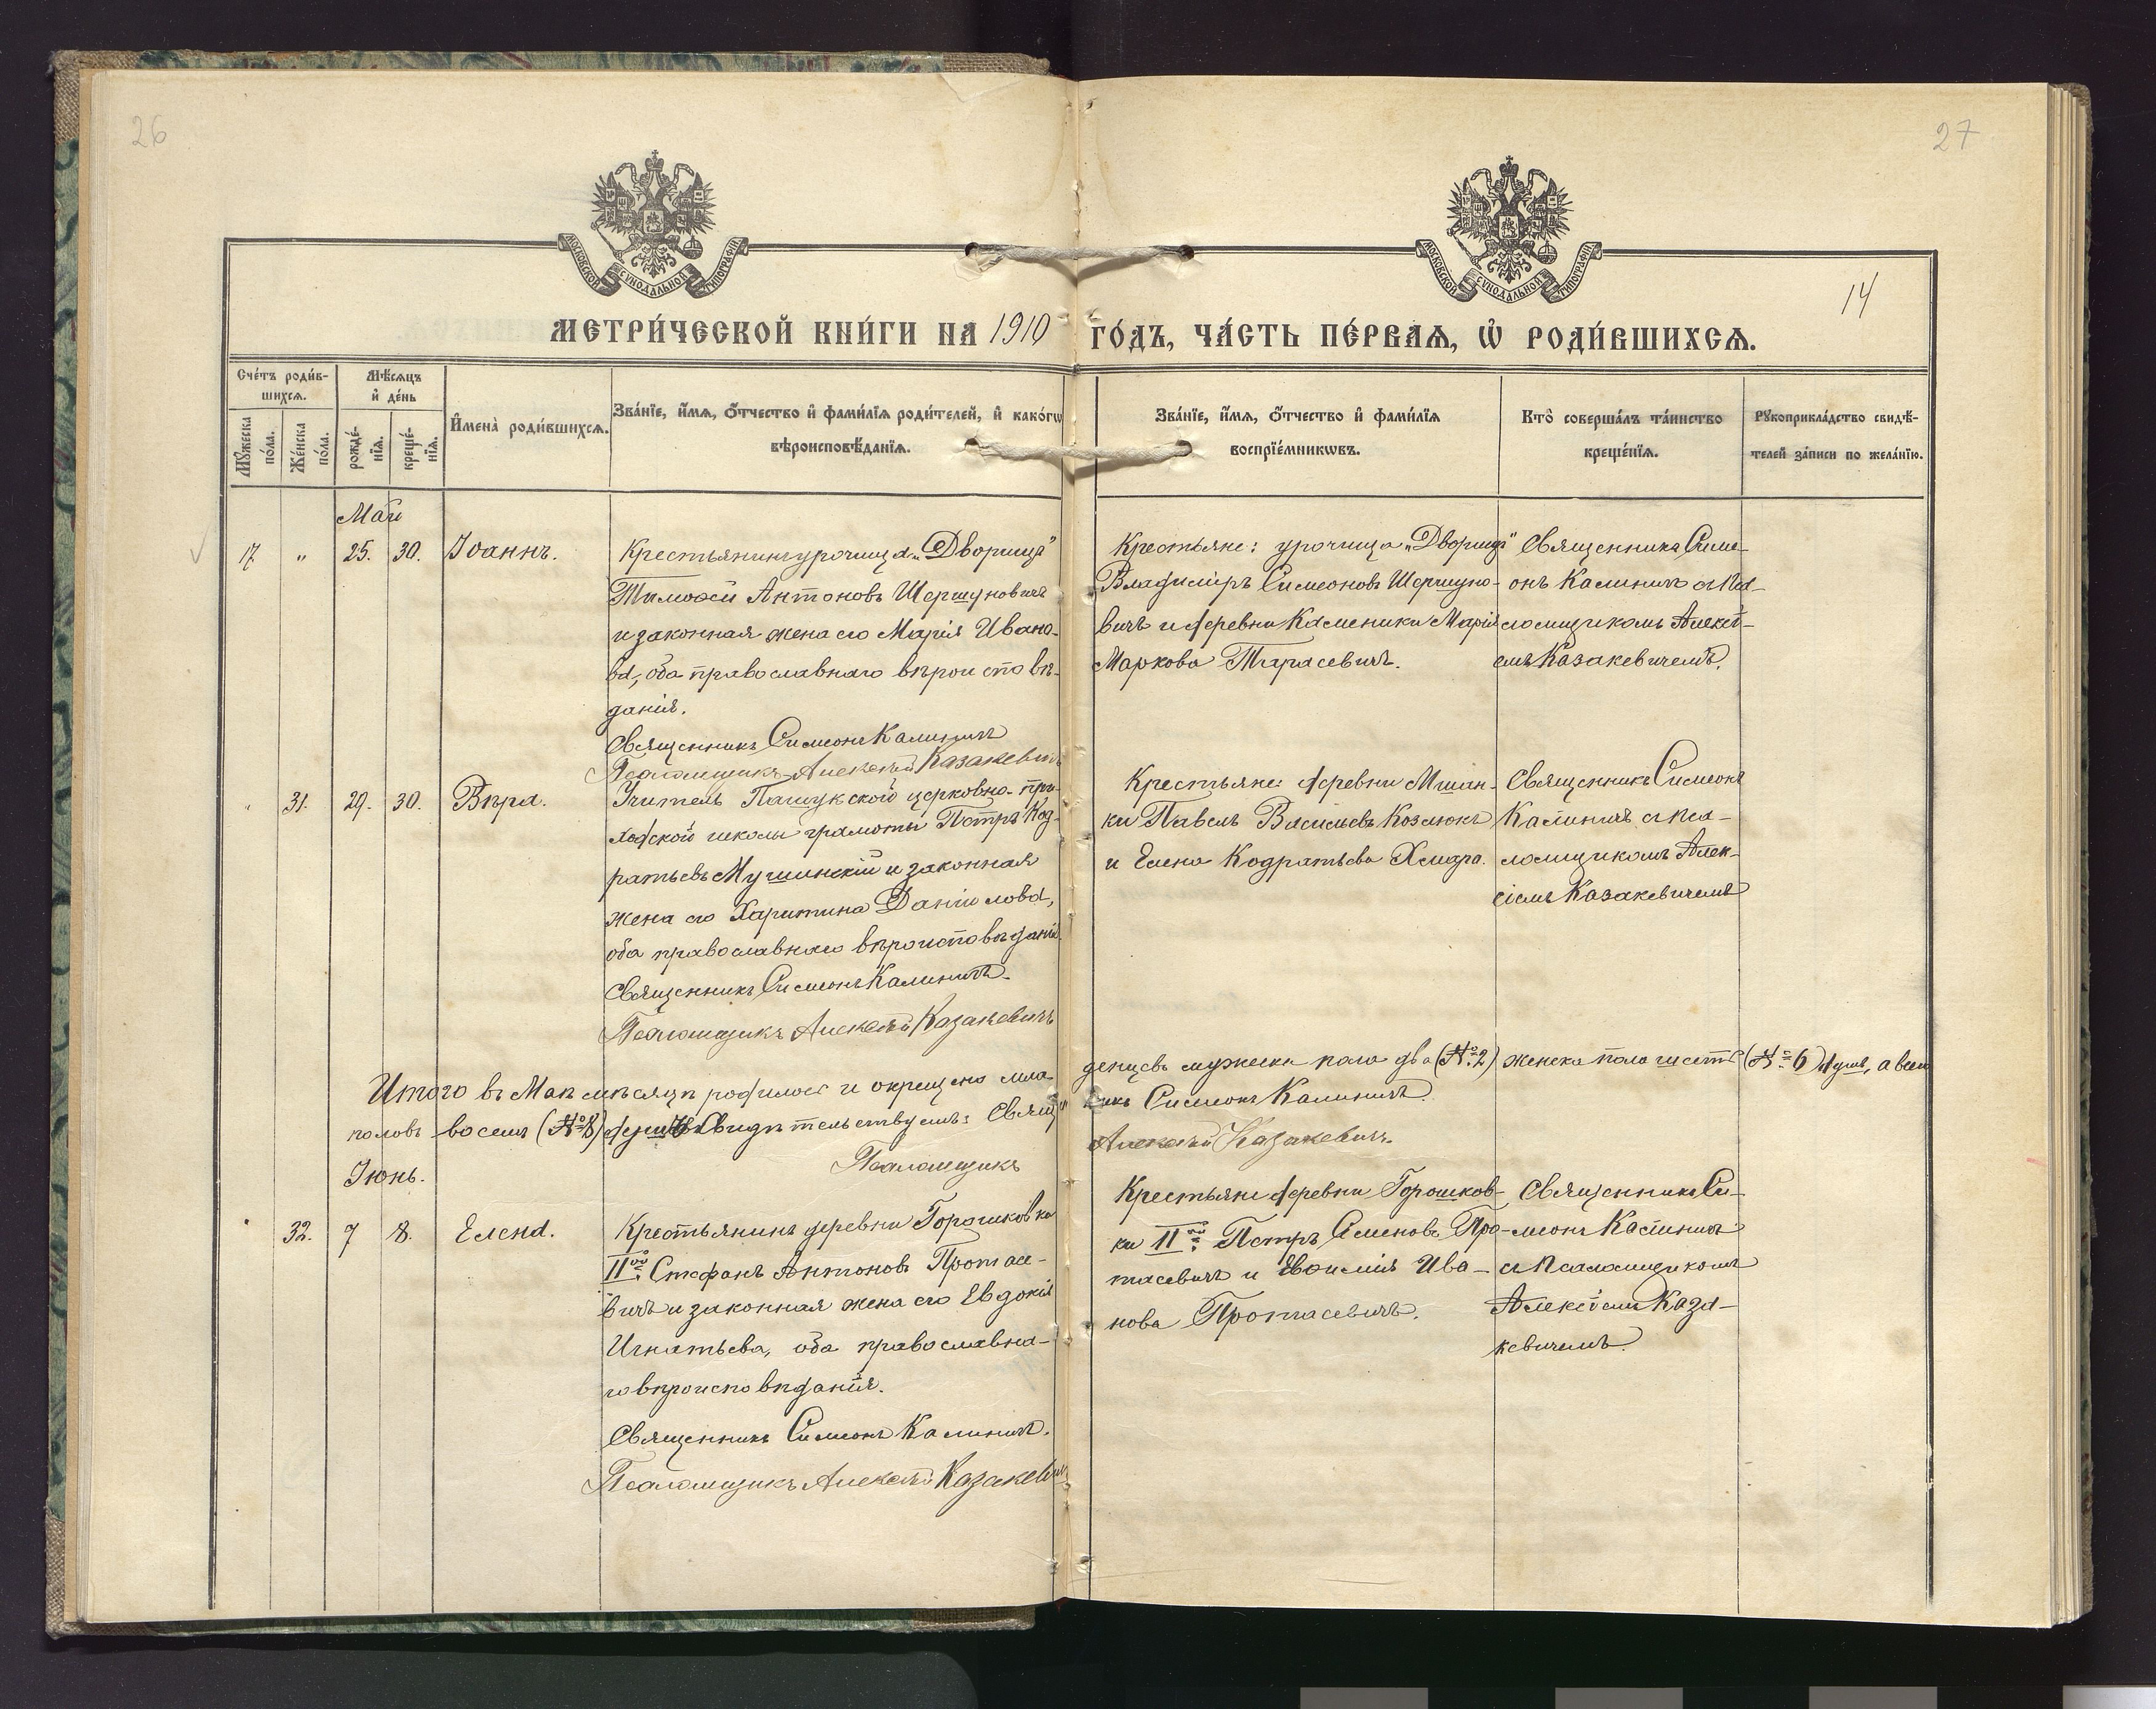 26
27
МОСКОВСКОЙ СѴНОДАЛЬНОЙ ТИПОГРАФІИ
МОСКОВСКОЙ СѴНОДАЛЬНОЙ ТИПОГРАФІИ
14
МЕТРИ́ЧЕСКОЙ КНИ́ГИ НА 1910 ГО́ДЪ, ЧА́СТЬ ПЕ́РВАѦ, Ѡ҆ РОДИ́ВШИХСѦ.
Сче́тъ роди́в-
шихсѧ.
Мꙋ́жеска
по́ла.
Же́нска
по́ла.
Мѣ́сѧцъ
и҆ де́нь
рожде́-
нїѧ.
креще́-
нїѧ.
И҆мена̀ роди́вшихсѧ.
Зва́нїе, и҆́мѧ, ѻ҆́тчество и҆ фами́лїѧ роди́телей, и҆ како́гѡ
вѣроисповѣ́данїѧ.
Зва́нїе, и҆́мѧ, ѻ҆́тчество и҆ фами́лїѧ
воспрїе́мникѡвъ.
Кто̀ соверша́лъ та́инство
креще́нїѧ.
Рꙋкоприкла́дство свидѣ́-
телей за́писи по жела́нїю.
Май
17. " 25. 30. Іоаннъ.
Крестьянинъ урочища „Дворища"
Тимофей Антоновъ Шершуновичъ
и законная жена его Марія Ивано-
ва, оба православнаго вѣроисповѣ-
данія.
Священникъ Симеонъ Калиничъ
Псаломщикъ Алексѣй Казакевичъ
Крестьяне: урочища „Дворища"
Владиміръ Симеоновъ Шершуно-
вичъ и деревни Каменики Марія
Маркова Тарасевичъ.
Священникъ Симе-
онъ Калиничъ съ пса-
ломщикомъ Алексѣ-
емъ Казакевичемъ.
" 31. 29. 30. Вѣра.
Учитель Пашукской церковно-при-
ходской школы грамоты Петръ Код-
ратьевъ Мушинскій и законная
жена его Харитина Даніилова,
оба православнаго вѣроисповѣданія.
Священникъ Симеонъ Калиничъ.
Псаломщикъ Алексѣй Казакевичъ
Крестьяне: деревни Мшан-
ки Павелъ Васильевъ Козлюкъ
и Елена Кодратьева Хмара.
Священникъ Симеонъ
Калиничъ съ пса-
ломщикомъ Алек-
сіемъ Казакевичемъ
Итого въ Маѣ мѣсяцѣ родилось и окрещено мла-
денцевъ мужеска пола два (№ 2) женска пола шесть (№ 6) душъ, а всего
половъ восемь (№ 8) душъ Свидѣтельствуемъ: Священ-
никъ Симеонъ Калиничъ.
Псаломщикъ Алексѣй Казакевичъ.
Іюнь.
" 32. 7 8. Елена.
Крестьянинъ деревни Горошковка
IIой Стефанъ Антоновъ Протасе-
вичъ и законная жена его Евдокія
Игнатьева, оба православна-
го вѣроисповѣданія.
Священникъ Симеонъ Калиничъ.
Псаломщикъ Алексѣй Казакевичъ
Крестьяне деревни Горошков-
ки IIой Петръ Семеновъ Про-
тасевичъ и Евфимія Ива-
нова Протасевичъ.
Священникъ Си-
меонъ Калиничъ
съ псаломщикомъ
Алексѣемъ Каза-
кевичемъ.